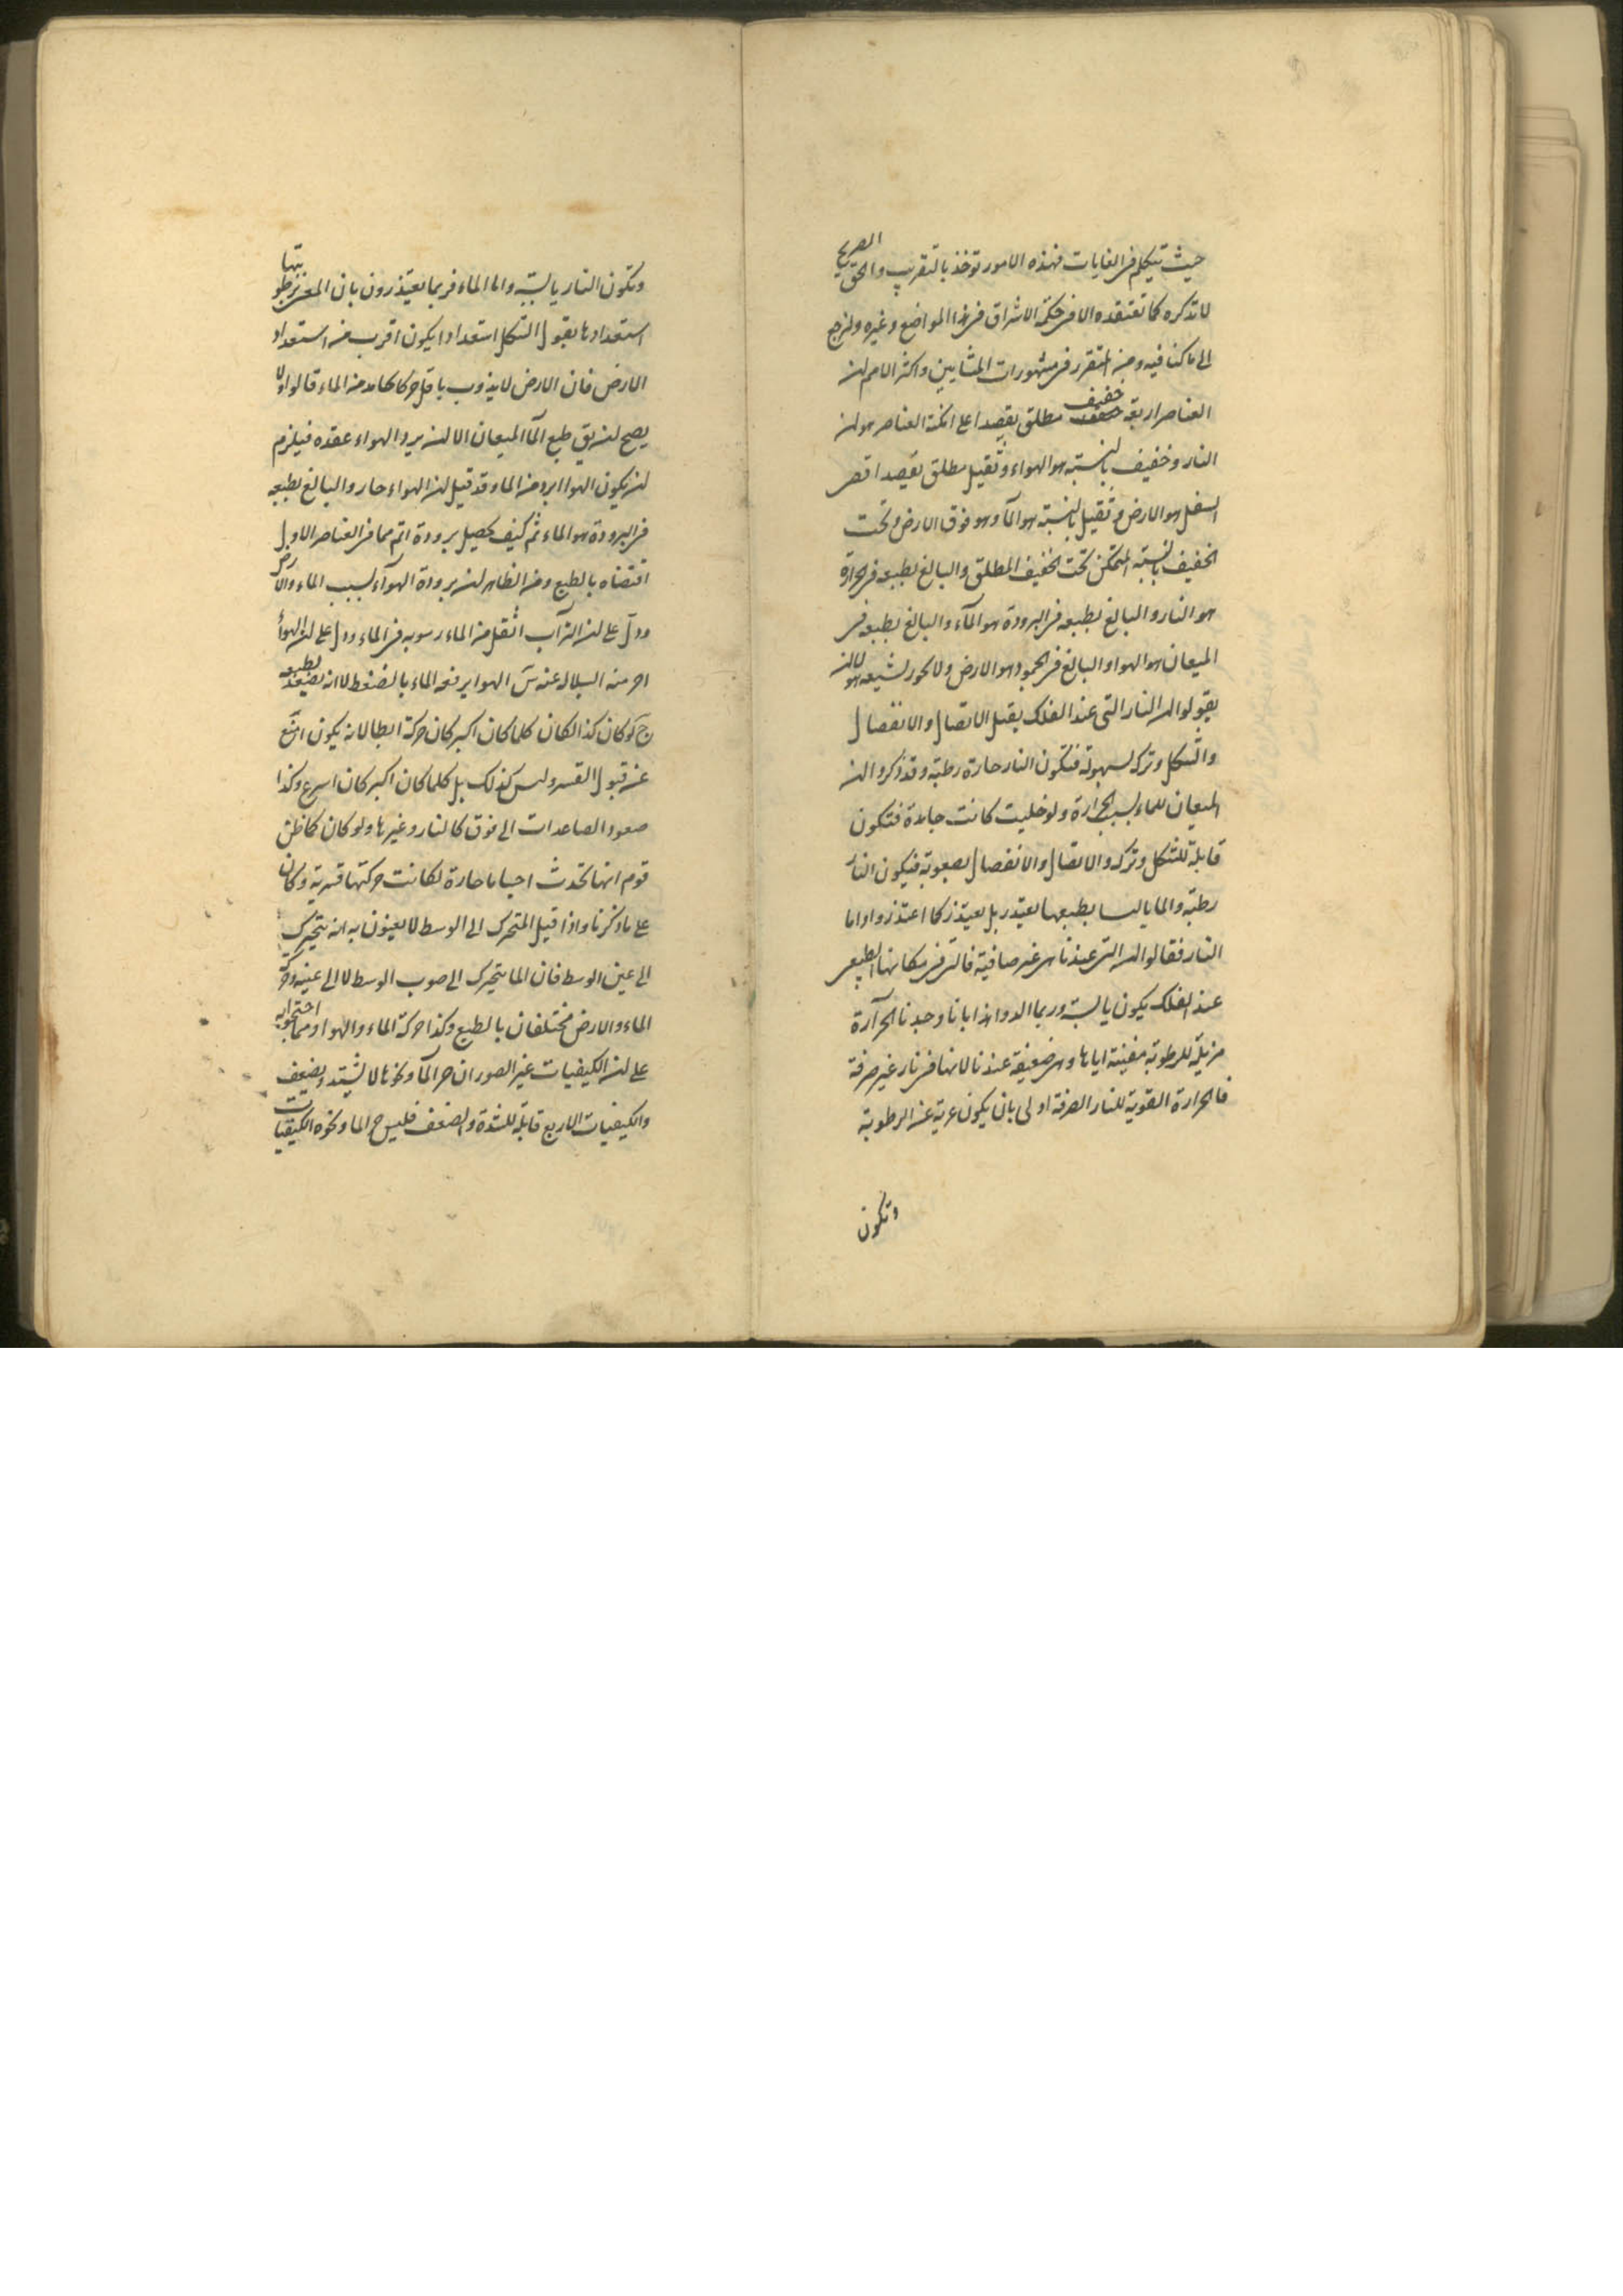 حيث تتكلم فى الغايات فهذه الامور توخذ بالتقريب والحق الصريح
لا تذكره كما تعتقده الا فى حكمة الاشراق فى هذا المواضع وغيره ولنرجع
الى ما كنا فيه ومن المتقرر فى مشهورات المشايين واكثر الامم ان
العناصر اربعة خفيف مطلق يقصد اعلى امكنة العناصر هو ان
النار وخفيف بالنسبة هو الهواء وثقيل مطلق يقصد اقصى
السفل هو الارض وثقيل بالنسبة هو المآ وهو فوق الارض وتحت
الخفيف بالنسبة المتمكن تحت الخفيف المطلق والبالغ بطبعه فى الحرارة
هو النار والبالغ بطبعه فى البرودة هو المآء والبالغ بطبعه فى
الميعان هو الهوا والبالغ فى الجمود هو الارض ولا يجوز لشيعه هولا ان
يقولوا ان النار التى عند الفلك يقبل الاتصال والانفصال
والتشكل وتركه لسهولة فتكون النار حارة رطبة وقد ذكروا ان
الميعان للماء بسبب الحرارة ولو خليت كانت جامدة فتكون
قابلة للتشكل وتركه والاتصال والانفصال بصعوبة فيكون النار
رطبة والما يابسا بطبعها يعتذر بل يعتذر كما اعتذروا واما
النار فقالوا ان التى عندنا هى غير صافية فالتى فى مكانها الطبيعى
عند الفلك يكون يابسة وربما الدوا هذا بانا وجدنا الحرآرة
مزيلة للرطوبة مفنية اياها وهى ضعيفة عندنا لانها فى نار غير صرفة
فالحرارة القوية للنار الصرفة اولى بان يكون عرية عن الرطوبة
وتكون
وتكون النار يابسة واما الماء فربما يعتذرون بان المعنى برطوبتها
استعدادها بقبول التشكل استعدادا يكون اقرب من استعداد
الارض فان الارض لا يذوب باقل حر كالجامد من الماء قالوا ولا
يصح ان يق طبع المآ الميعان الا ان برد الهواء عقده فيلزم
ان يكون الهوا ابرد من الما وقد قيل ان الهواء حار والبالغ بطبعه
فى البرودة هو الماء ثم كيف يحصل برودة اتم مما فى العناصر الاول
اقتضاه بالطبع ومن الظاهر ان برودة الهوآء لسبب الماء والارض
ودل على ان التراب اثقل من الماء رسوبه فى الماء ودل على ان الهوأ
احر منه السلاله عنه الهوا يرفعه الماء بالضغط لا انه يصعد بطبعه
لو كان كذا لكان كلما كان اكبر كان حركة ابطا لانه يكون امنع
عن قبول القسر وليس كذلك بل كلما كان اكبر كان اسرع وكذا
صعود الصاعدات الى فوق كالنار وغيرها ولو كان كما ظن
قوم انها تحدث احيانا حارة لكانت حركتها قسرية وكان
على ما ذكرنا واذا قيل المتحرك الى الوسط لا يعنون به انه يتحرك
الى عين الوسط فان الما يتحرك الى صوب الوسط لا الى عينه وحركة
الماء والارض مختلفان بالطبع وكذا حركة الماء والهوا ومما احتجوا به
على ان الكيفيات غير الصور ان حر المآ ونحوها لا يشتد ويضعف
والكيفيات الاربع قابلة للشدة والضعف فليس ح الما ونحوه الكيفيات